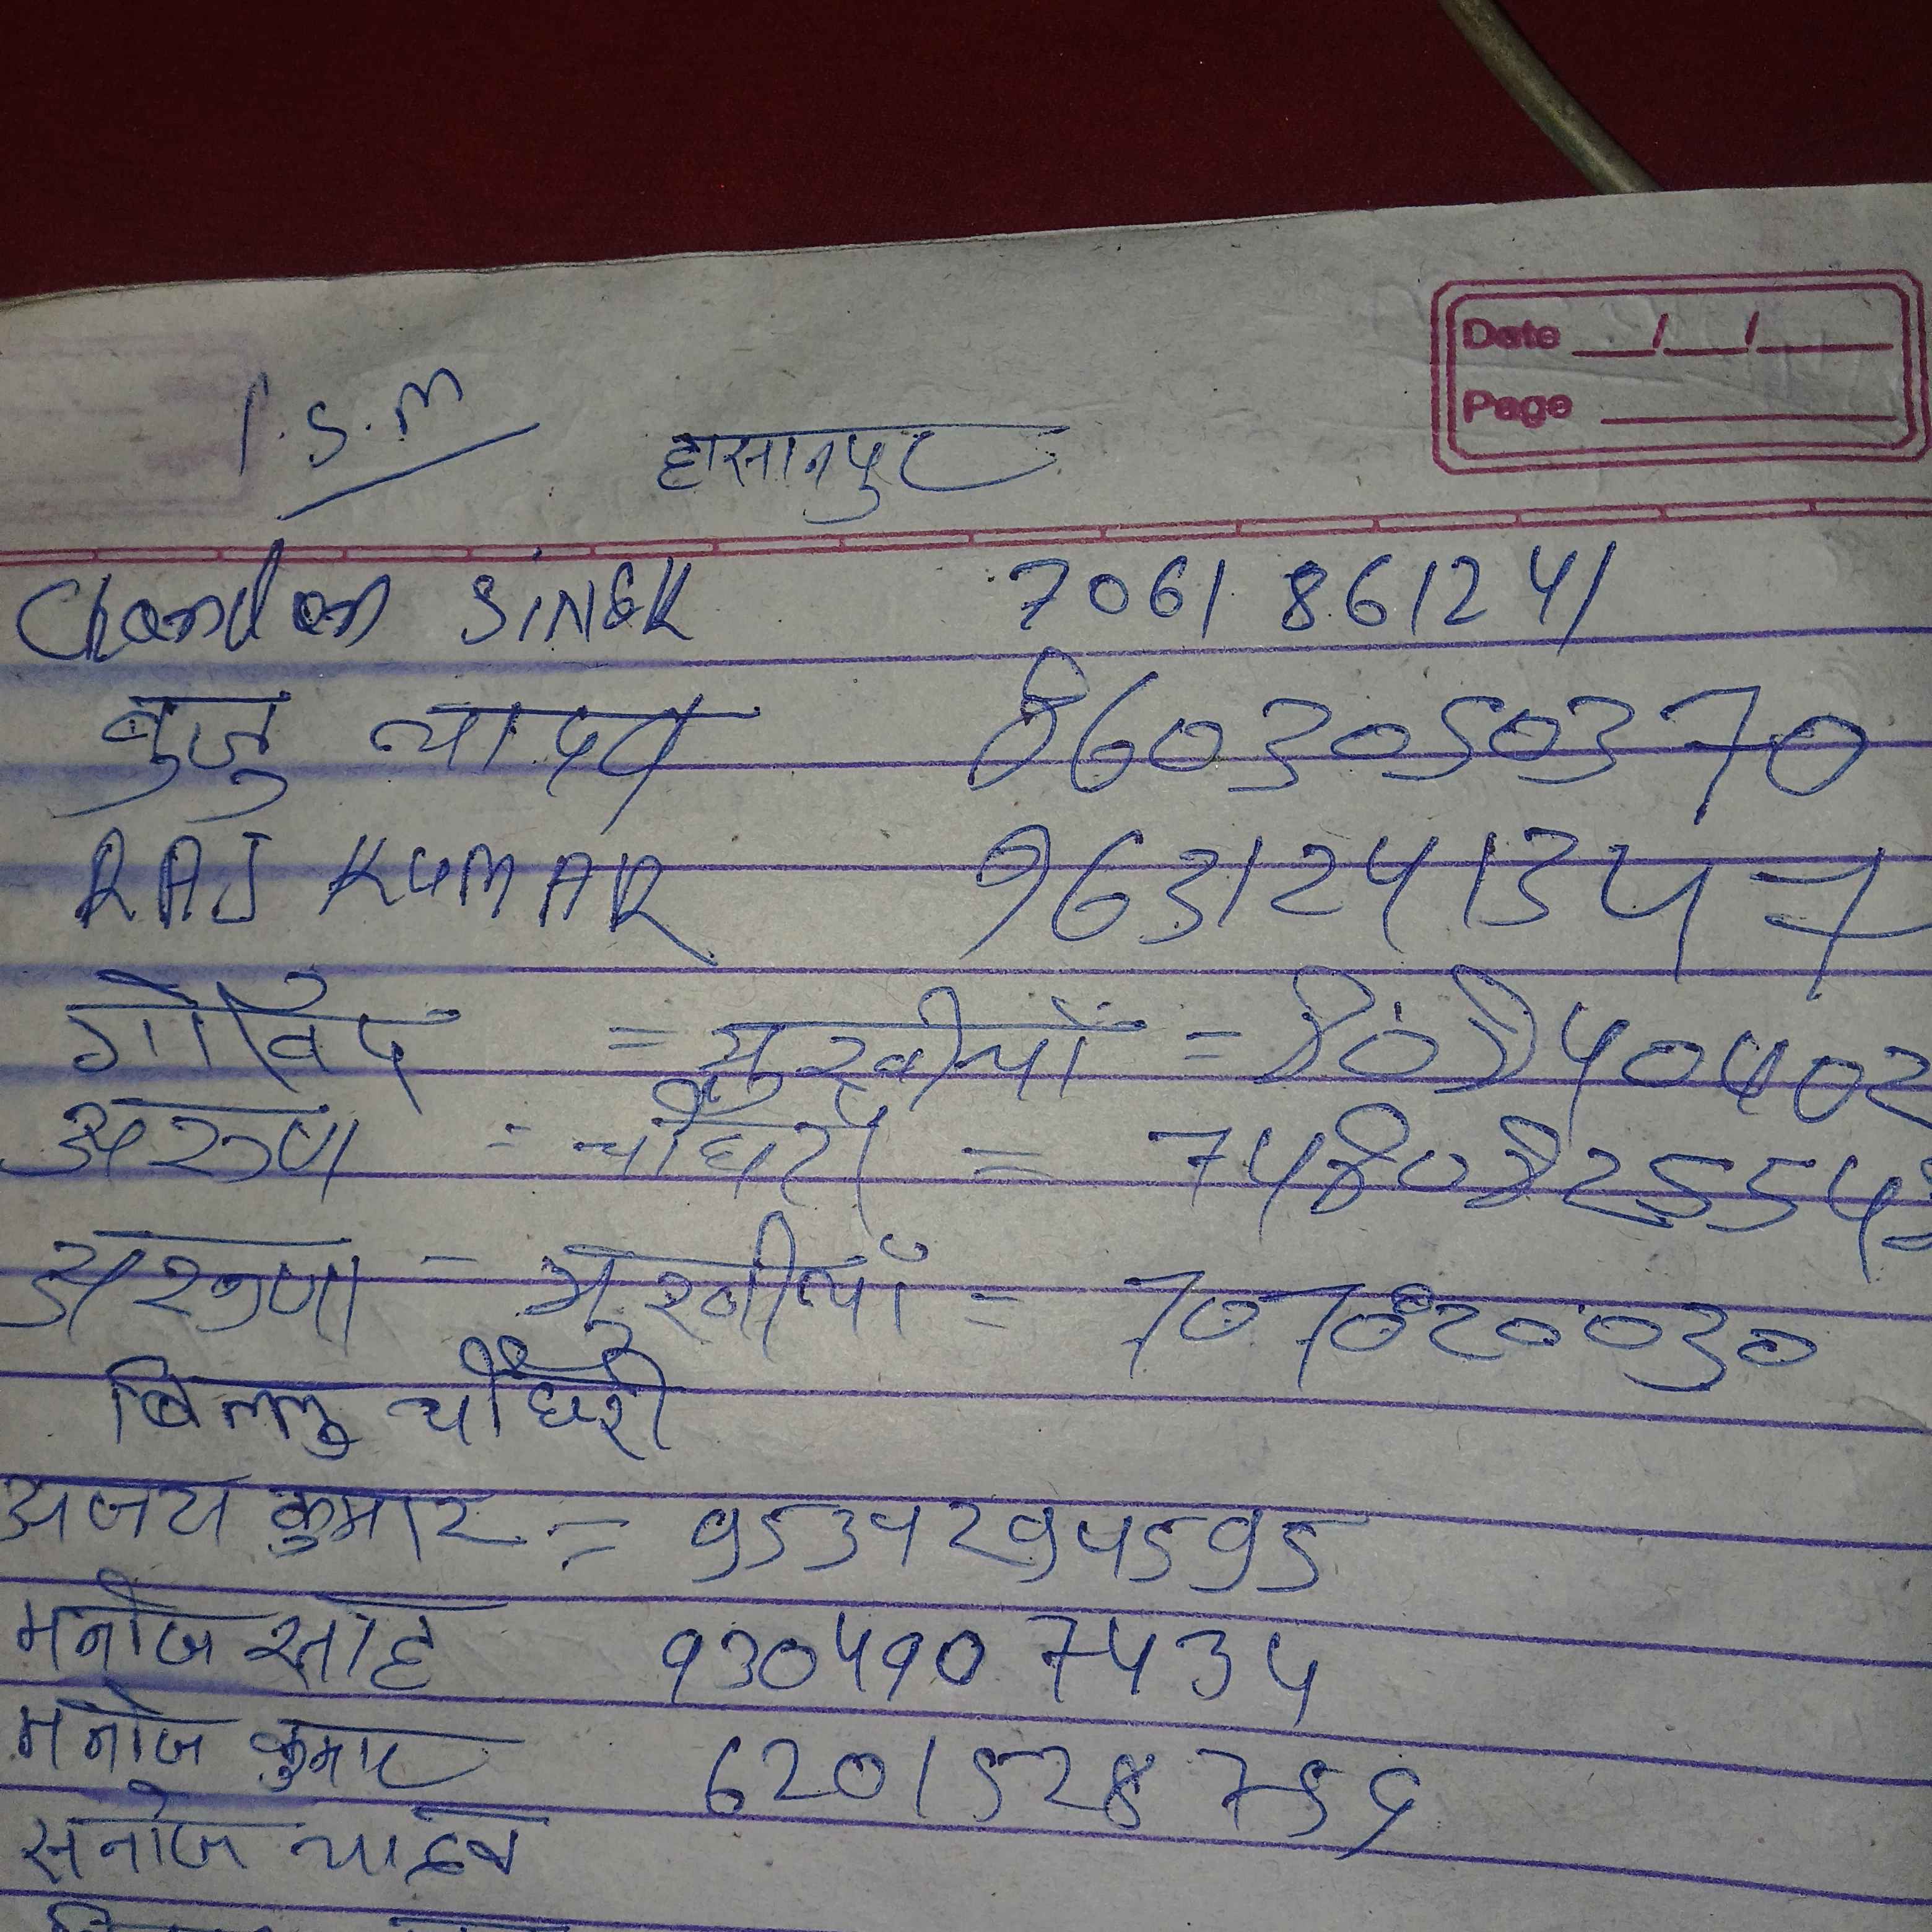 Date __/__/____
Page ____
I.S.M हासानपुर
Chandan SINGH 7061861241
बुजु यादव 8603050370
RAJ KUMAR 9631241347
गोविंद = मुखीयाँ =
अरुण = चौधरी =
अरुण = मुखीयाँ = 7070820030
बिल्लु चौधरी
अजय कुमार =
मनोज साह 9304907434
मनोज कुमार 620152875
सनोज यादव